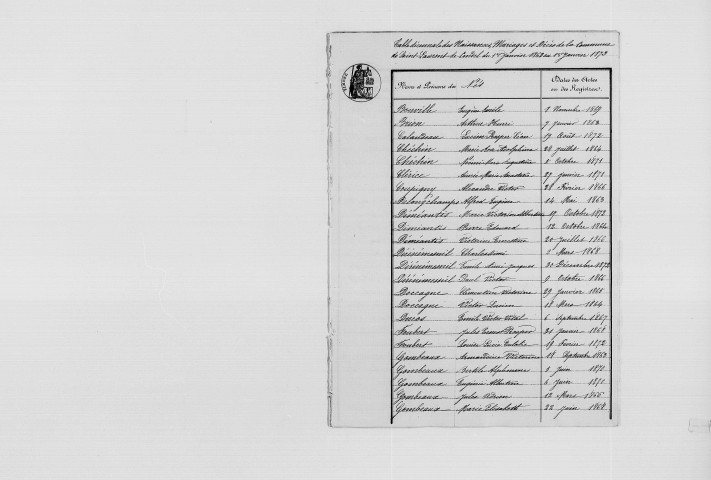 Table décennale des Naissances, Mariages et Décès de la Commune
de Saint-Laurent-de- du 1er janvier 1863 au 1er janvier 1873
TIMBRE
Noms et Prénoms des Nés
Dates des Actes ou des Registres
Bonville Eugène 2 Novembre 1869
Brion Arthur Henri 7 janvier 1863
Calandeau Lucien Prosper 19 Août 1872
Chéchin Marie 28 juillet 1864
Chéchin Augustine 8 Octobre 1871
Clérice Anna Marie 27 janvier 1871
Coupigny Alexandre Victor 28 Février 1866
Delongchamps Alfred Eugène 14 Mai 1863
Démiantes Marie Victorine 19 Octobre 1872
Démiantes Pierre Edmond 12 Octobre 1864
Démiantes Victorine Ernestine 20 juillet 1866
Dénémesnil Charles 3 Mars 1868
Dénémesnil Emile Jacques 30 Décembre 1872
Dénémesnil Paul Victor 9 Octobre 1866
Doccagne Clémentine Victorine 29 janvier 1868
Doccagne Victor Lucien 18 Mars 1864
Ducos Emile Victor Vital 6 Septembre 1867
Foubert Jules Prosper 31 janvier 1868
Foubert Louise 19 Février 1872
Gombeaux Armandine Victorine 18 Septembre 1863
Gombeaux Berthe Alphonsine 5 juin 1871
Gombeaux Eugène Albertine 6 juin 1871
Gombeaux Jules Adrien 12 Mars 1866
Gombeaux Marie Elisabeth 22 juin 1868